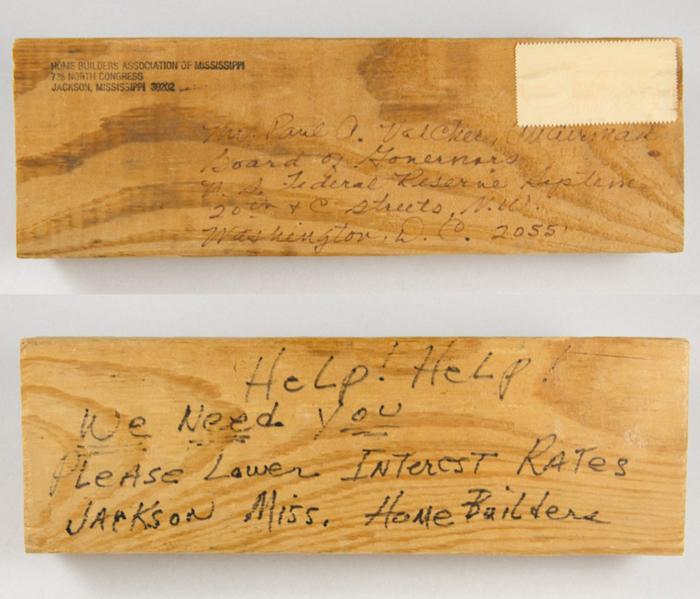 HOME BUILDERS ASSOCIATION OF MISSISSIPPI
738 NORTH CONGRESS
JACKSON, MISSISSIPPI 39202
Mr. Paul A. Valcher, Chairman
Board of Governors
U. S. Federal Reserve System
20th & C Streets, N.W.
Washington, D. C. 2055
Help! Help!
We Need You
Please Lower Interest Rates
Jackson Miss. Home Builders